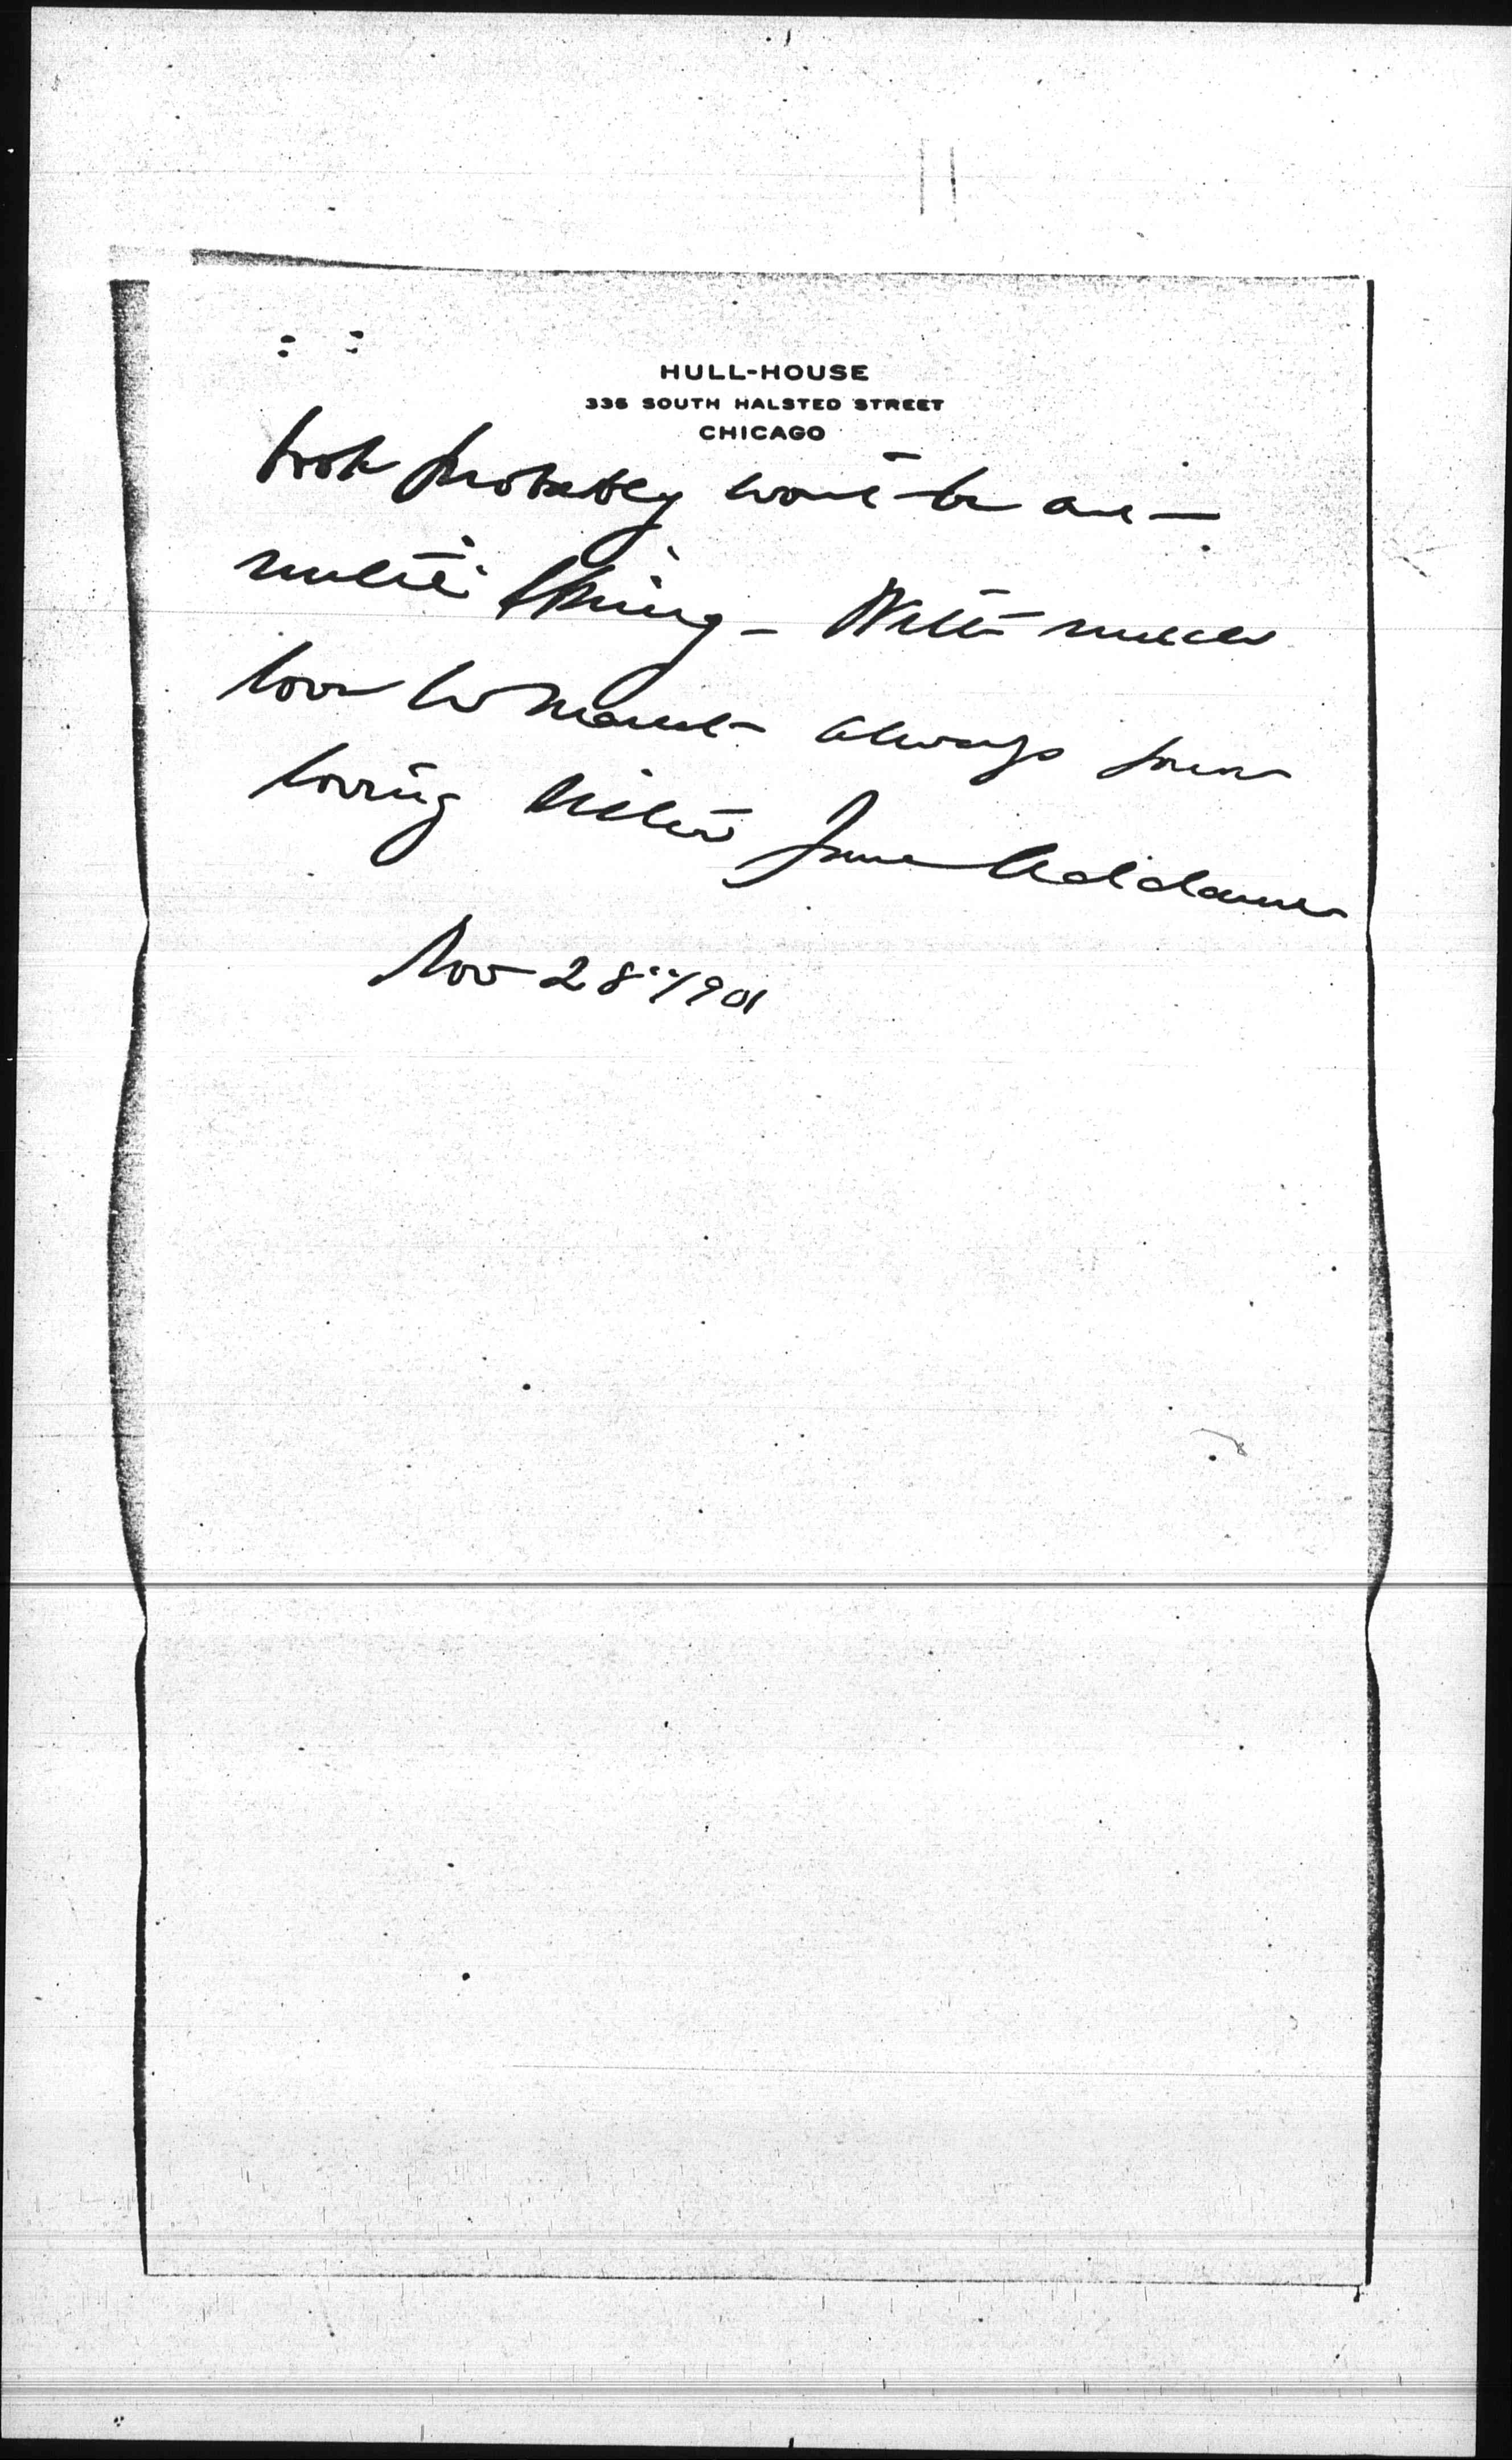 HULL-HOUSE
335 SOUTH HALSTED STREET
CHICAGO
book probably won't be out —
until Spring — With much
love to Marcet always your
loving sister Jane Addams
Nov 28" 1901